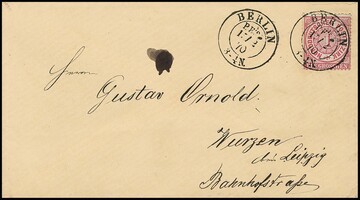 BERLIN
BERLIN
GROSCHEN
Herrn
Gustav Arnold.
Wurzen
bei Leipzig
Bahnhofstraße